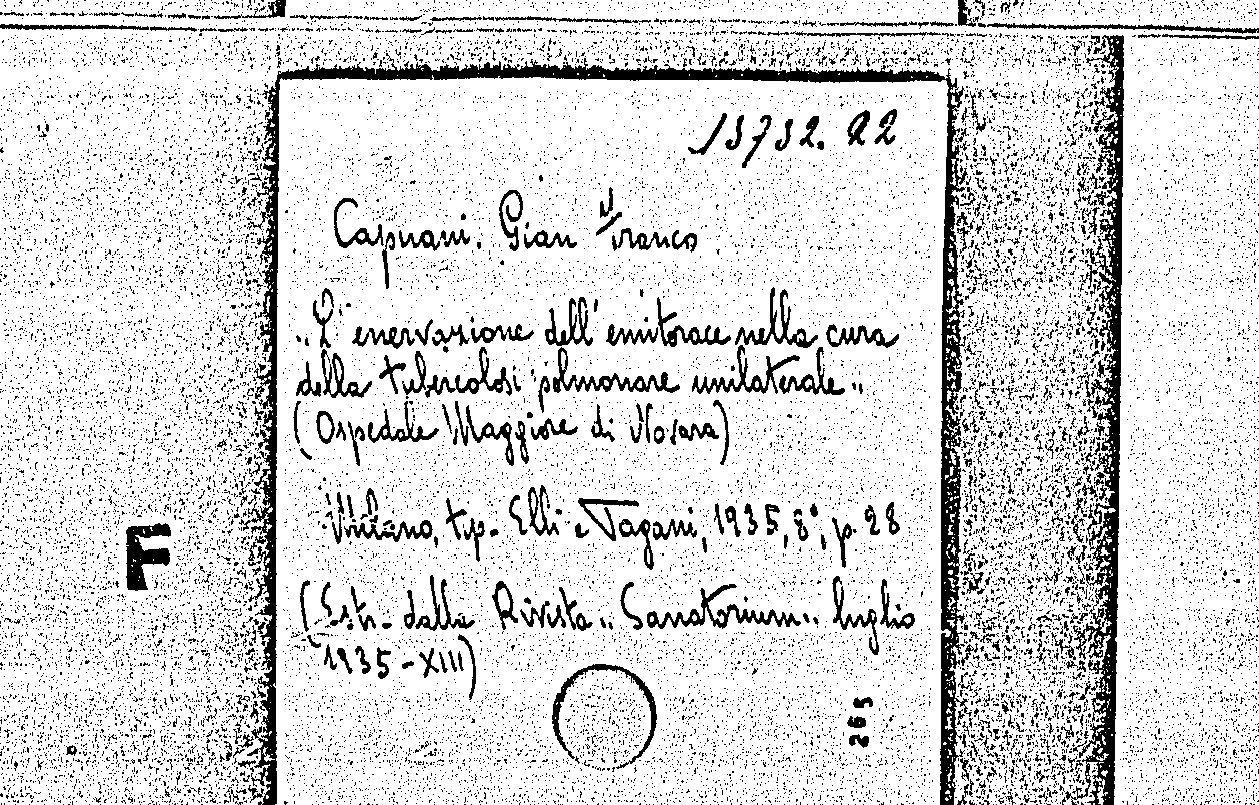 15732. 22
Capuani. Gian Franco
"L' enervazione dell' emitorace nella cura
della tubercolosi polmonare unilaterale"
(Ospedale Maggiore di Novara)
F
Milano, tip. Elli e Pagani, 1935, 8°, p. 28
(Estr. dalla Rivista "Sanatorium" luglio
1935-XIII)
265